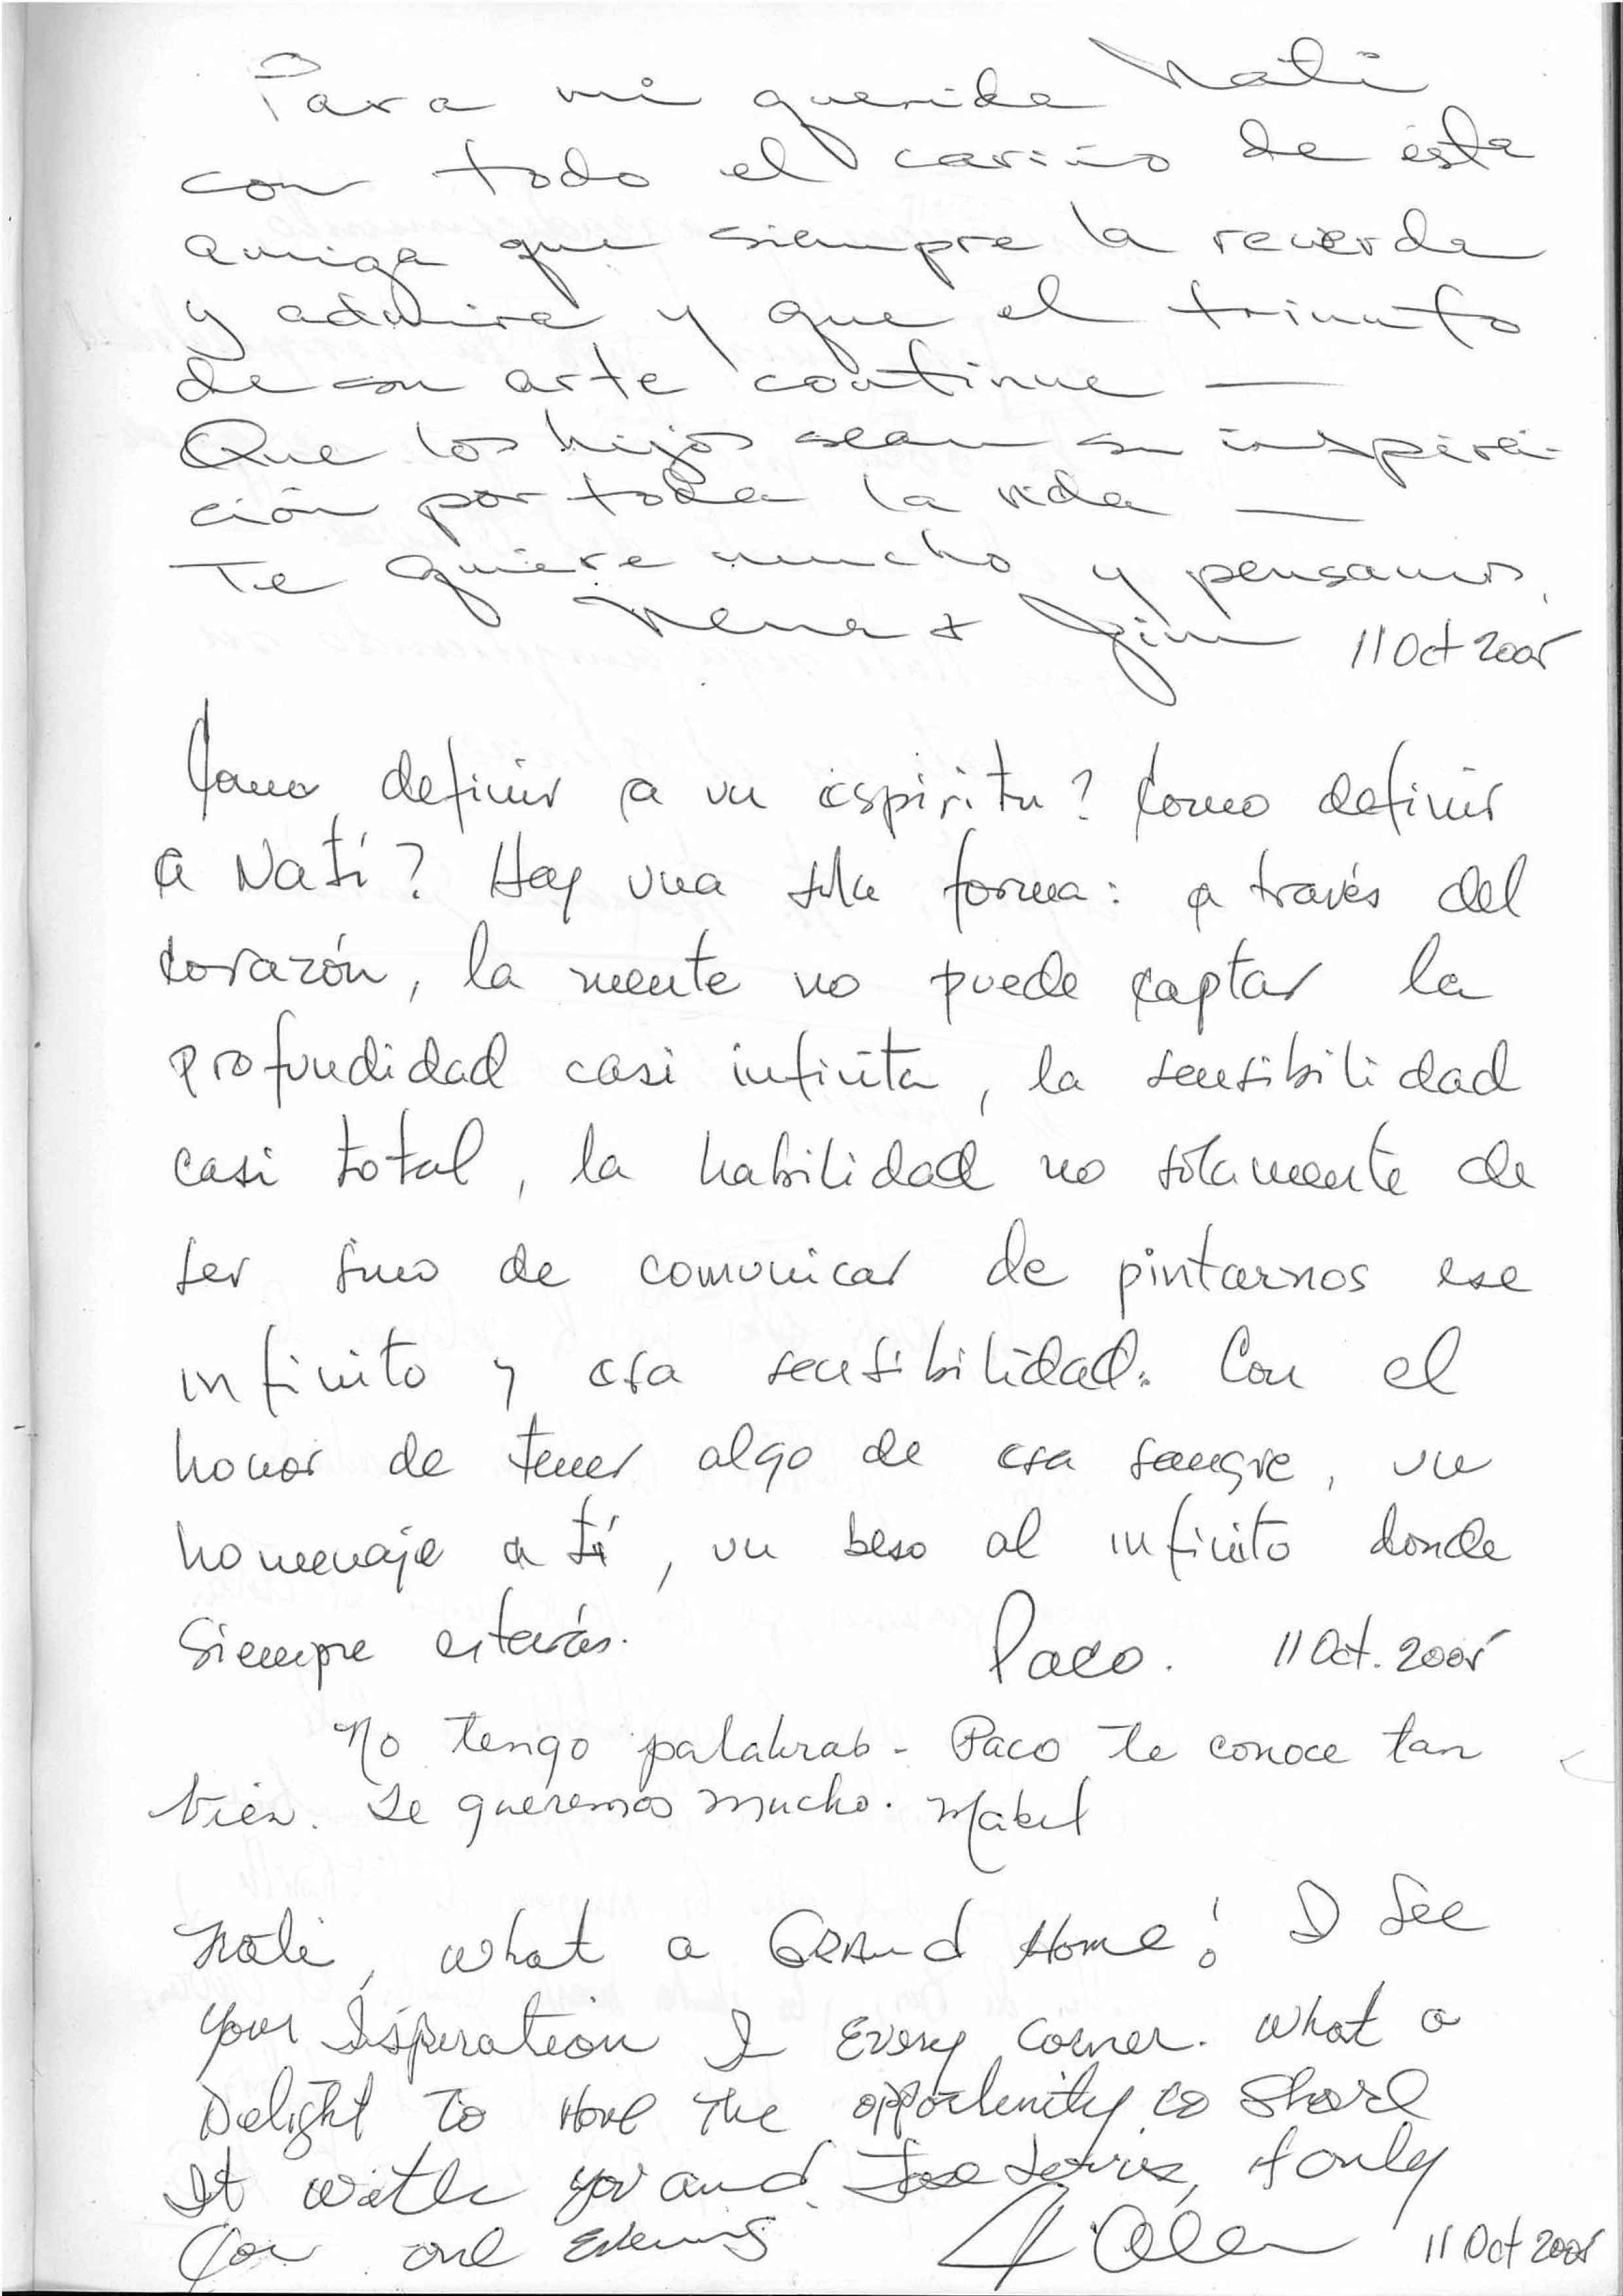 Para mi querida Nati
con todo el cariño de ésta
amiga que siempre la recuerda
y admira y que el triunfo
de su arte continue —
Que los hijos sean su inspira-
ción por toda la vida —
Te quiere mucho y pensamos,
Nena + Jim 11 Oct 2005
Como definir a un espiritu? Como definir
a Natí? Hay una sola forma: a través del
corazón, la mente no puede captar la
profundidad casi infinita, la sensibilidad
casi total, la habilidad no solamente de
ser sino de comunicar de pintarnos ese
infinito y esa sensibilidad. Con el
honor de tener algo de esa sangre, un
homenaje a tí, un beso al infinito donde
siempre estarás. Paco. 11 Oct. 2005
No tengo palabras - Paco te conoce tan
bien. Te queremos mucho. Mabel
Nati, what a GRAnd Home! I See
your Isperation I Every corner. what a
Delight To Have The opportunity to Share
It with you and Jose Luis, if only
for one Evening 11 Oct 2005